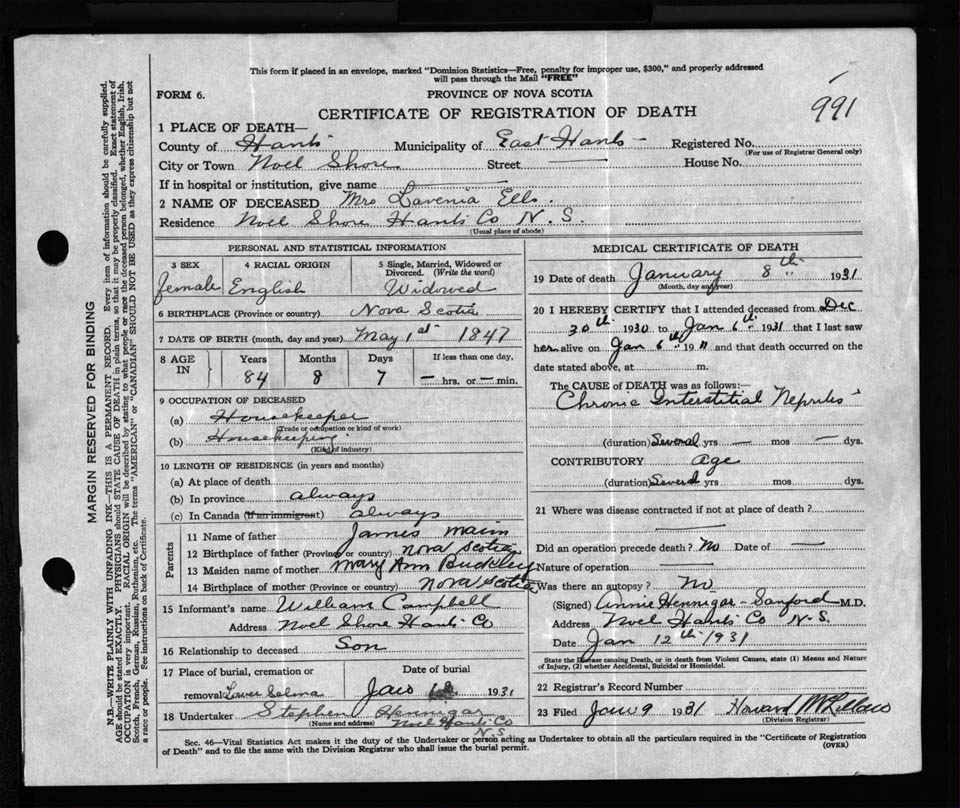 This form if placed in an envelope, marked "Dominion Statistics—Free, penalty for improper use, $300," and properly addressed
will pass through the Mail "FREE"
FORM 6.
PROVINCE OF NOVA SCOTIA
991
CERTIFICATE OF REGISTRATION OF DEATH
1 PLACE OF DEATH—
County of Hants Municipality of East Hants Registered No.
(For use of Registrar General only)
City or Town Noel Shore Street House No.
If in hospital or institution, give name
2 NAME OF DECEASED Mrs Lavenia Ells.
Residence Noel Shore Hants Co N.S.
(Usual place of abode)
PERSONAL AND STATISTICAL INFORMATION
3 SEX
female
4 RACIAL ORIGIN
English
5 Single, Married, Widowed or
Divorced. (Write the word)
Widowed
6 BIRTHPLACE (Province or country) Nova Scotia
7 DATE OF BIRTH (month, day and year) May 1st 1847
8 AGE
IN
Years
84
Months
8
Days
7
If less than one day,
— hrs. or — min.
9 OCCUPATION OF DECEASED
(a) Housekeeper
(Trade or occupation or kind of work)
(b) Housekeeping
(Kind of industry)
10 LENGTH OF RESIDENCE (in years and months)
(a) At place of death
(b) In province always
(c) In Canada (if an immigrant) always
Parents
11 Name of father James Main
12 Birthplace of father (Province or country) Nova Scotia
13 Maiden name of mother Mary Ann Buckley
14 Birthplace of mother (Province or country) Nova Scotia
15 Informant's name William Campbell
Address Noel Shore Hants Co
16 Relationship to deceased Son
17 Place of burial, cremation or
removal Lower Selma
Date of burial
Jan 1931
18 Undertaker Stephen Hennigar
(Name and address) Noel Hants Co
N.S
MEDICAL CERTIFICATE OF DEATH
19 Date of death January 8th 1931
(Month, day and year)
20 I HEREBY CERTIFY that I attended deceased from Dec
30th 1930 to Jan 6th 1931 that I last saw
her alive on Jan 6th 19 and that death occurred on the
date stated above, at m.
The CAUSE OF DEATH was as follows:—
Chronic Interstitial Nephritis
(duration) Several yrs — mos — dys.
CONTRIBUTORY age
(duration) Several yrs mos dys.
21 Where was disease contracted if not at place of death?
Did an operation precede death? No Date of —
Nature of operation
Was there an autopsy? No
(Signed) Annie Hennigar-Sanford M.D.
Address Noel Hants Co N.S.
Date Jan 12th 1931
State the Disease causing Death, or in death from Violent Causes, state (1) Means and Nature
of Injury, (2) whether Accidental, Suicidal or Homicidal.
22 Registrar's Record Number
23 Filed Jan 9 1931 Howard
(Division Registrar)
Sec. 46—Vital Statistics Act makes it the duty of the Undertaker or person acting as Undertaker to obtain all the particulars required in the "Certificate of Registration
of Death" and to file the same with the Division Registrar who shall issue the burial permit.
(OVER)
MARGIN RESERVED FOR BINDING
N.B.—WRITE PLAINLY WITH UNFADING INK—THIS IS A PERMANENT RECORD. Every item of information should be carefully supplied.
AGE should be stated EXACTLY. PHYSICIANS should STATE CAUSE OF DEATH in plain terms, so that it may be properly classified. Exact statement of
OCCUPATION is very important. RACIAL ORIGIN will be described by stating to what people or race the deceased person belonged, whether English, Irish,
Scotch, French, German, Russian, Ruthenian, etc. The terms "AMERICAN" or "CANADIAN" SHOULD NOT BE USED as they express citizenship but not
a race or people. See instructions on back of Certificate.